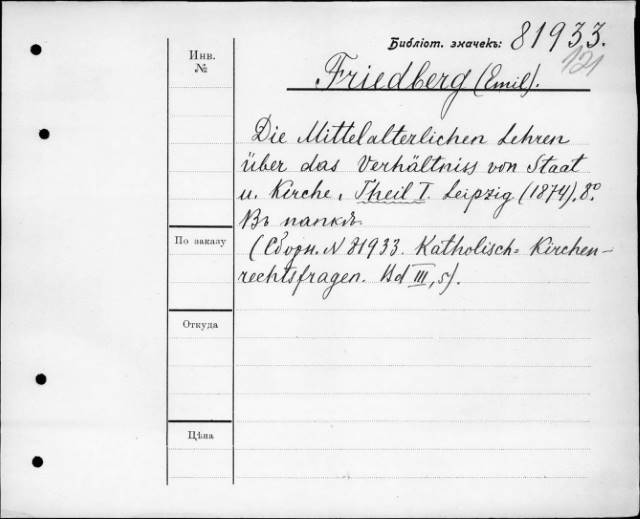 Библіот. значекъ: 81933.
121
Инв.
№
Friedberg (Emil).
Die Mittelalterlichen Lehren
über das Verhältniss von Staat
u. Kirche, Theil I. Leipzig (1874). 8º
Въ папкѣ.
По заказу
(Сборн. N 81933. Katholisch= Kirchen-
rechtsfragen. Bd III, 5).
Откуда
Цѣна